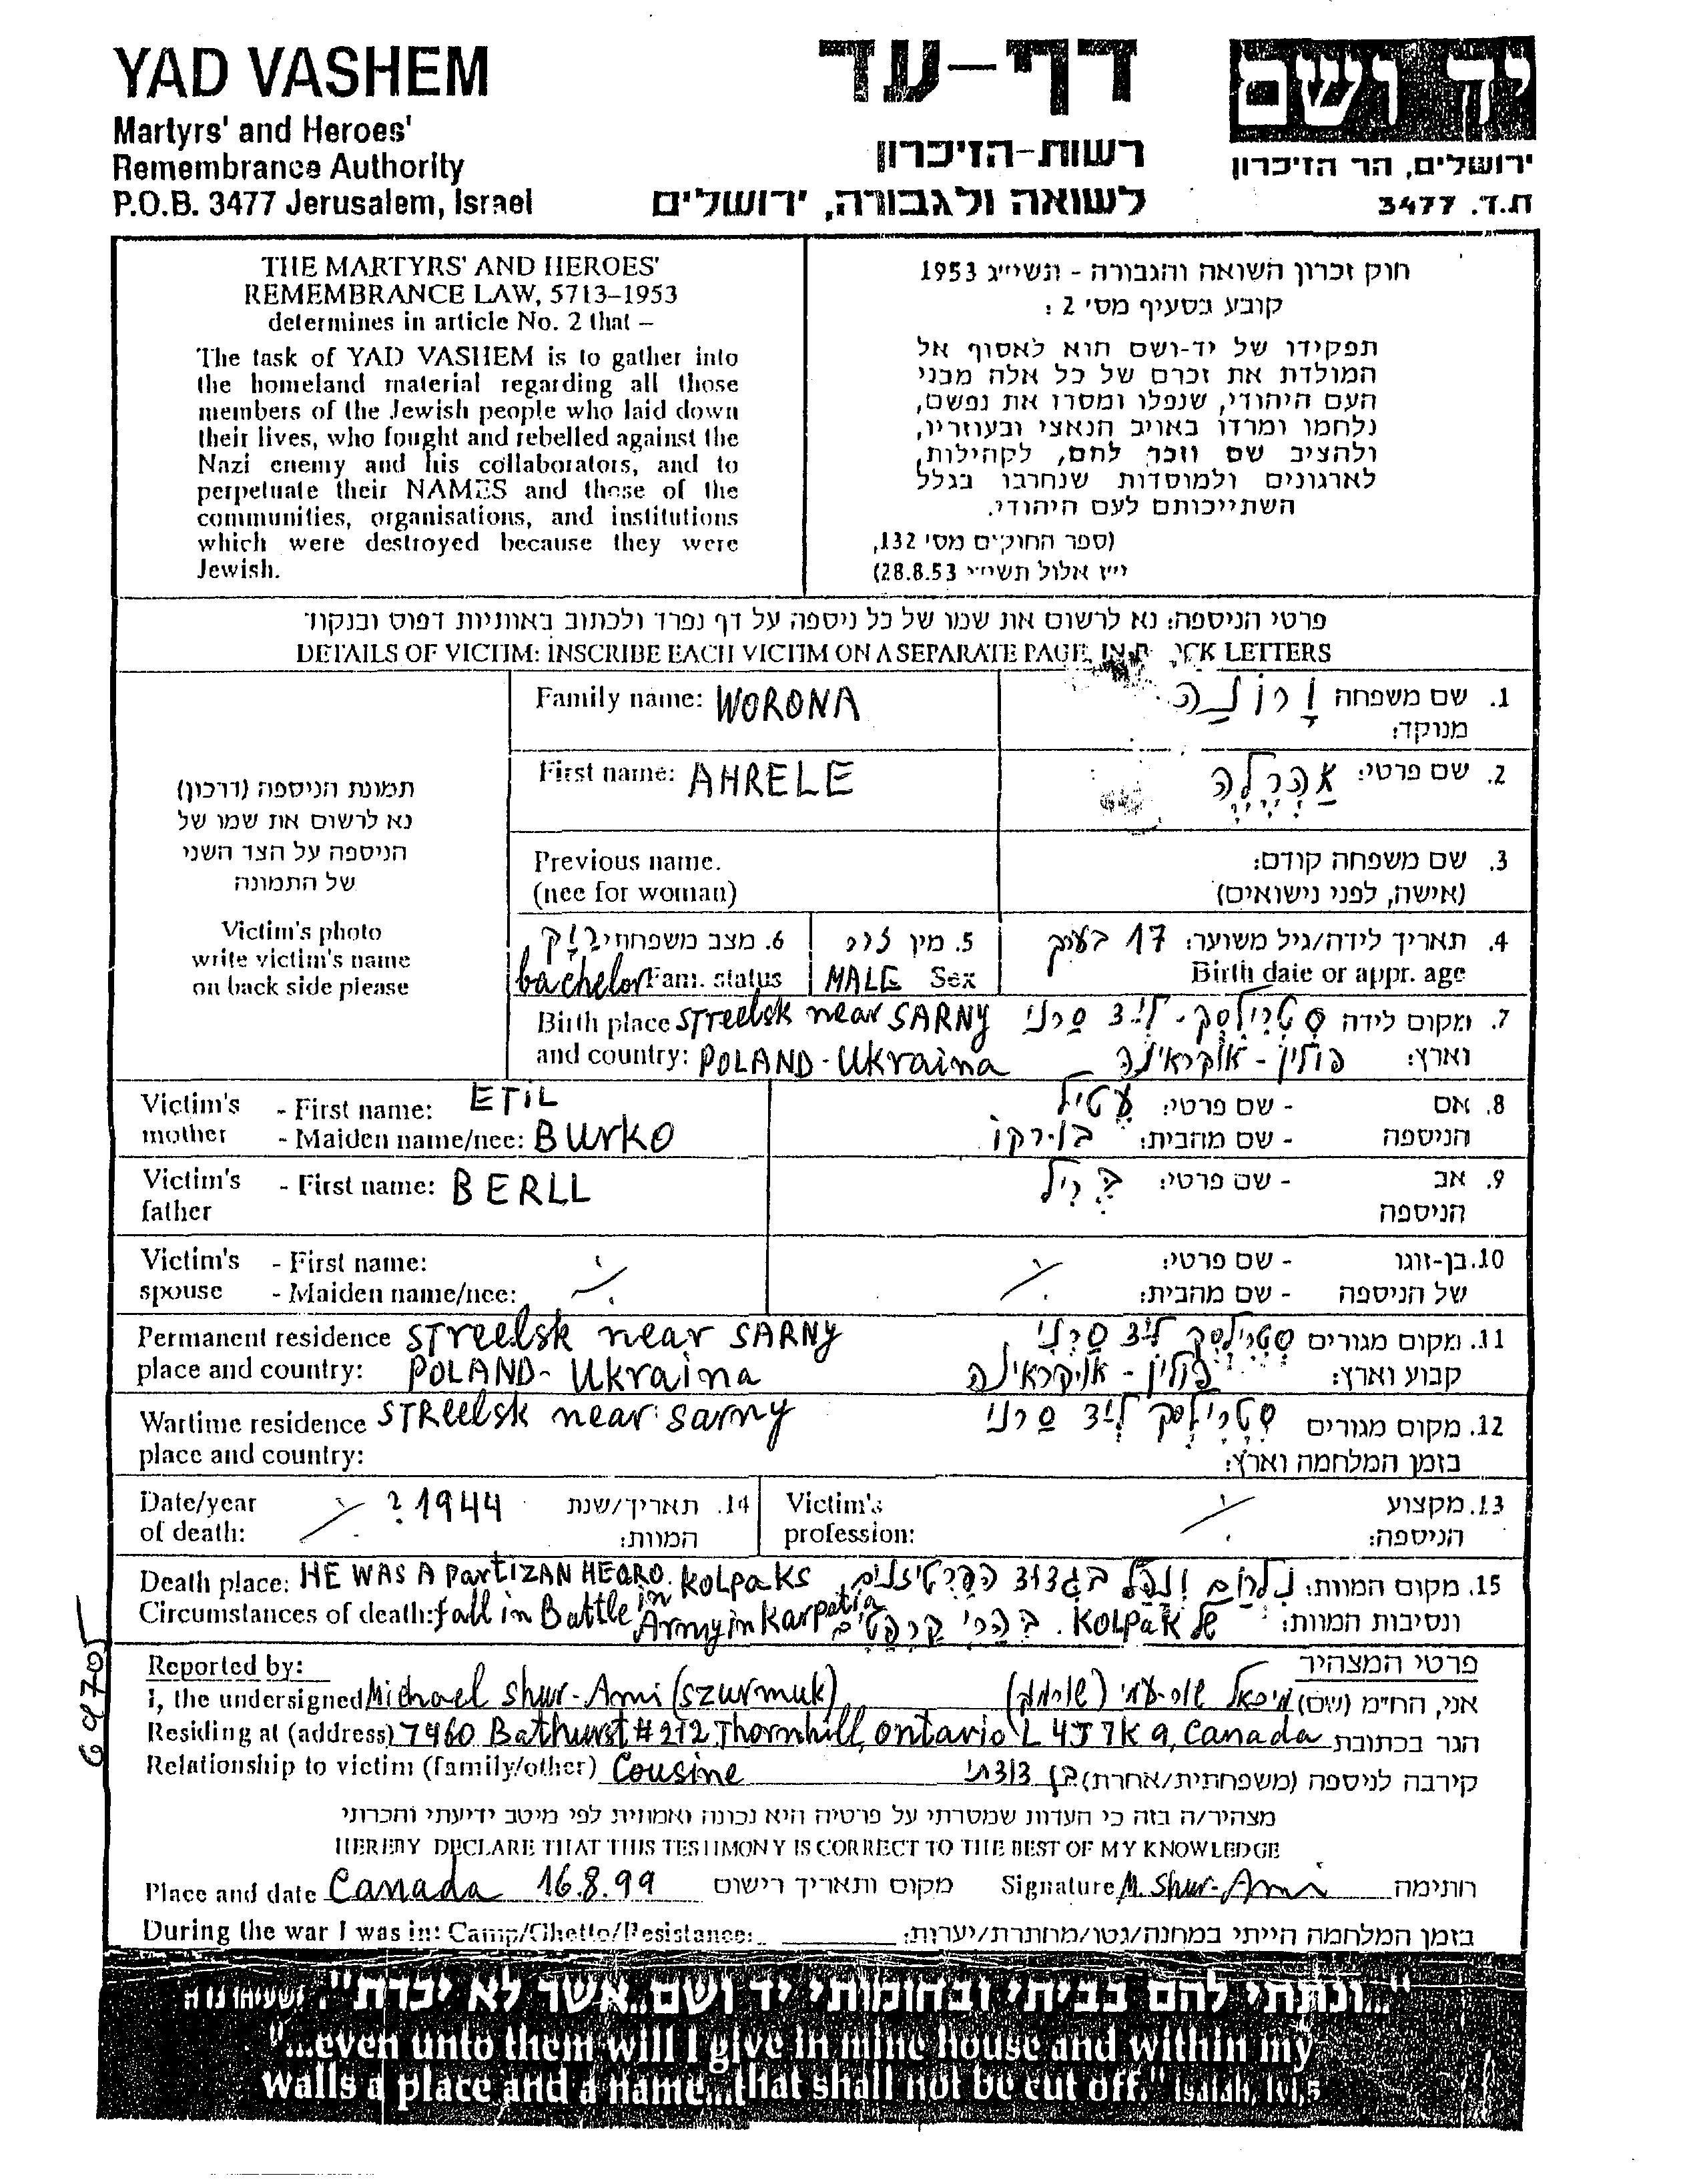 YAD VASHEM
Martyrs' and Heroes'
Remembrance Authority
P.O.B. 3477 Jerusalem, Israel
דף-עד
רשות-הזיכרון
לשואה ולגבורה, ירושלים
יד ושם
ירושלים, הר הזיכרון
ת.ד. 3477
THE MARTYRS' AND HEROES'
REMEMBRANCE LAW, 5713–1953
determines in article No. 2 that –
The task of YAD VASHEM is to gather into
the homeland material regarding all those
members of the Jewish people who laid down
their lives, who fought and rebelled against the
Nazi enemy and his collaborators, and to
perpetuate their NAMES and those of the
communities, organisations, and institutions
which were destroyed because they were
Jewish.
חוק זכרון השואה והגבורה - תשי״ג 1953
קובע בסעיף מס׳ 2 :
תפקידו של יד-ושם הוא לאסוף אל
המולדת את זכרם של כל אלה מבני
העם היהודי, שנפלו ומסרו את נפשם,
נלחמו ומרדו באויב הנאצי ובעוזריו,
ולהציב שם וזכר להם, לקהילות,
לארגונים ולמוסדות שנחרבו בגלל
השתייכותם לעם היהודי.
(ספר החוקים מס׳ 132,
י״ז אלול תשי״ג 28.8.53)
פרטי הניספה: נא לרשום את שמו של כל ניספה על דף נפרד ולכתוב באותיות דפוס ובנקוד
DETAILS OF VICTIM: INSCRIBE EACH VICTIM ON A SEPARATE PAGE, IN LETTERS
תמונת הניספה (דרכון)
נא לרשום את שמו של
הניספה על הצד השני
של התמונה
Victim's photo
write victim's name
on back side please
Family name: WORONA
1. שם משפחה מנוקד: וָרוֹנַה
First name: AHRELE
2. שם פרטי: אַהְרֶלֶה
Previous name.
(nee for woman)
3. שם משפחה קודם:
(אישה, לפני נישואים)
6. מצב משפחתי רַוָק
bachelor Fam. status
5. מין זכר
MALE Sex
4. תאריך לידה/גיל משוער: 17 בערך
Birth date or appr. age
Birth place STreelsk near SARNY
and country: POLAND - Ukraina
7. מקום לידה סְטְרִילְסְק - לְיַד סַרְני
וארץ: פולין - אוקראינה
Victim's mother - First name: ETiL
- Maiden name/nee: Burko
8. אם הניספה - שם פרטי: עֶטִיל
- שם מהבית: בורקו
Victim's father - First name: BERLL
9. אב הניספה - שם פרטי: בֶּרִיל
Victim's spouse - First name:
- Maiden name/nee:
10. בן-זוגו של הניספה - שם פרטי:
- שם מהבית:
Permanent residence STreelsk near SARNY
place and country: POLAND - Ukraina
11. מקום מגורים סְטְרִילְסְק לְיַד סַרְני
קבוע וארץ: פולין - אוקראינה
Wartime residence STReelsk near sarny
place and country:
12. מקום מגורים סְטְרִילְסְק לְיַד סַרְני
בזמן המלחמה וארץ:
Date/year
of death:
14. תאריך/שנת ? 1944
המוות:
Victim's
profession:
13. מקצוע
הניספה:
Death place: HE WAS A PartiZAN HEARO. KOLPAKS
Circumstances of death: fall in Battle in Army in Karpatia
15. מקום המוות: נִלְחַם וְנָפַל בִּגְדוּד הַפַּרְטִיזָנִים
ונסיבות המוות: של KOLPAK. בְּהָרֵי קַרְפָּטִים
Reported by:
פרטי המצהיר
I, the undersigned Michael Shur-Ami (szurmuk)
אני, הח״מ (שם) מיכאל שור-עמי (שורמוק)
Residing at (address) 7460 Bathurst # 212 Thornhill, ontario L4J 7K9, Canada הגר בכתובת
Relationship to victim (family/other) Cousine
קירבה לניספה (משפחתית/אחרת) בן דודתי
מצהיר/ה בזה כי העדות שמסרתי על פרטיה היא נכונה ואמתית לפי מיטב ידיעתי והכרתי
HEREBY DECLARE THAT THIS TESTIMONY IS CORRECT TO THE BEST OF MY KNOWLEDGE
Place and date Canada 16.8.99 מקום ותאריך רישום Signature M. Shur-Ami חתימה
During the war I was in: Camp/Ghetto/Resistance: בזמן המלחמה הייתי במחנה/גטו/מחתרת/יערות:
"...ונתתי להם בביתי ובחומותי יד ושם...אשר לא יכרת". ישעיהו נו ה
"...even unto them will I give in mine house and within my
walls a place and a name...that shall not be cut off." Isaiah, lvi,5